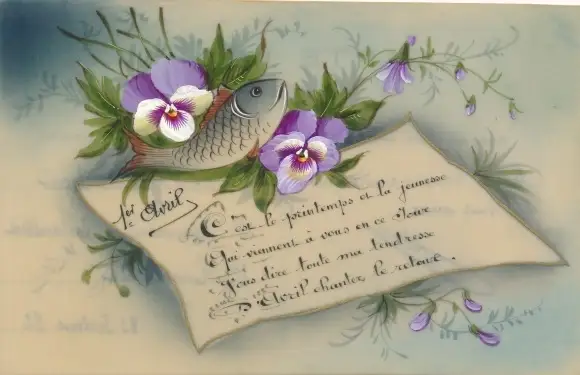 1er Avril
C'est le printemps et la jeunesse
Qui viennent à vous en ce Jour
Vous dire toute ma tendresse
D'Avril chanter le retour.